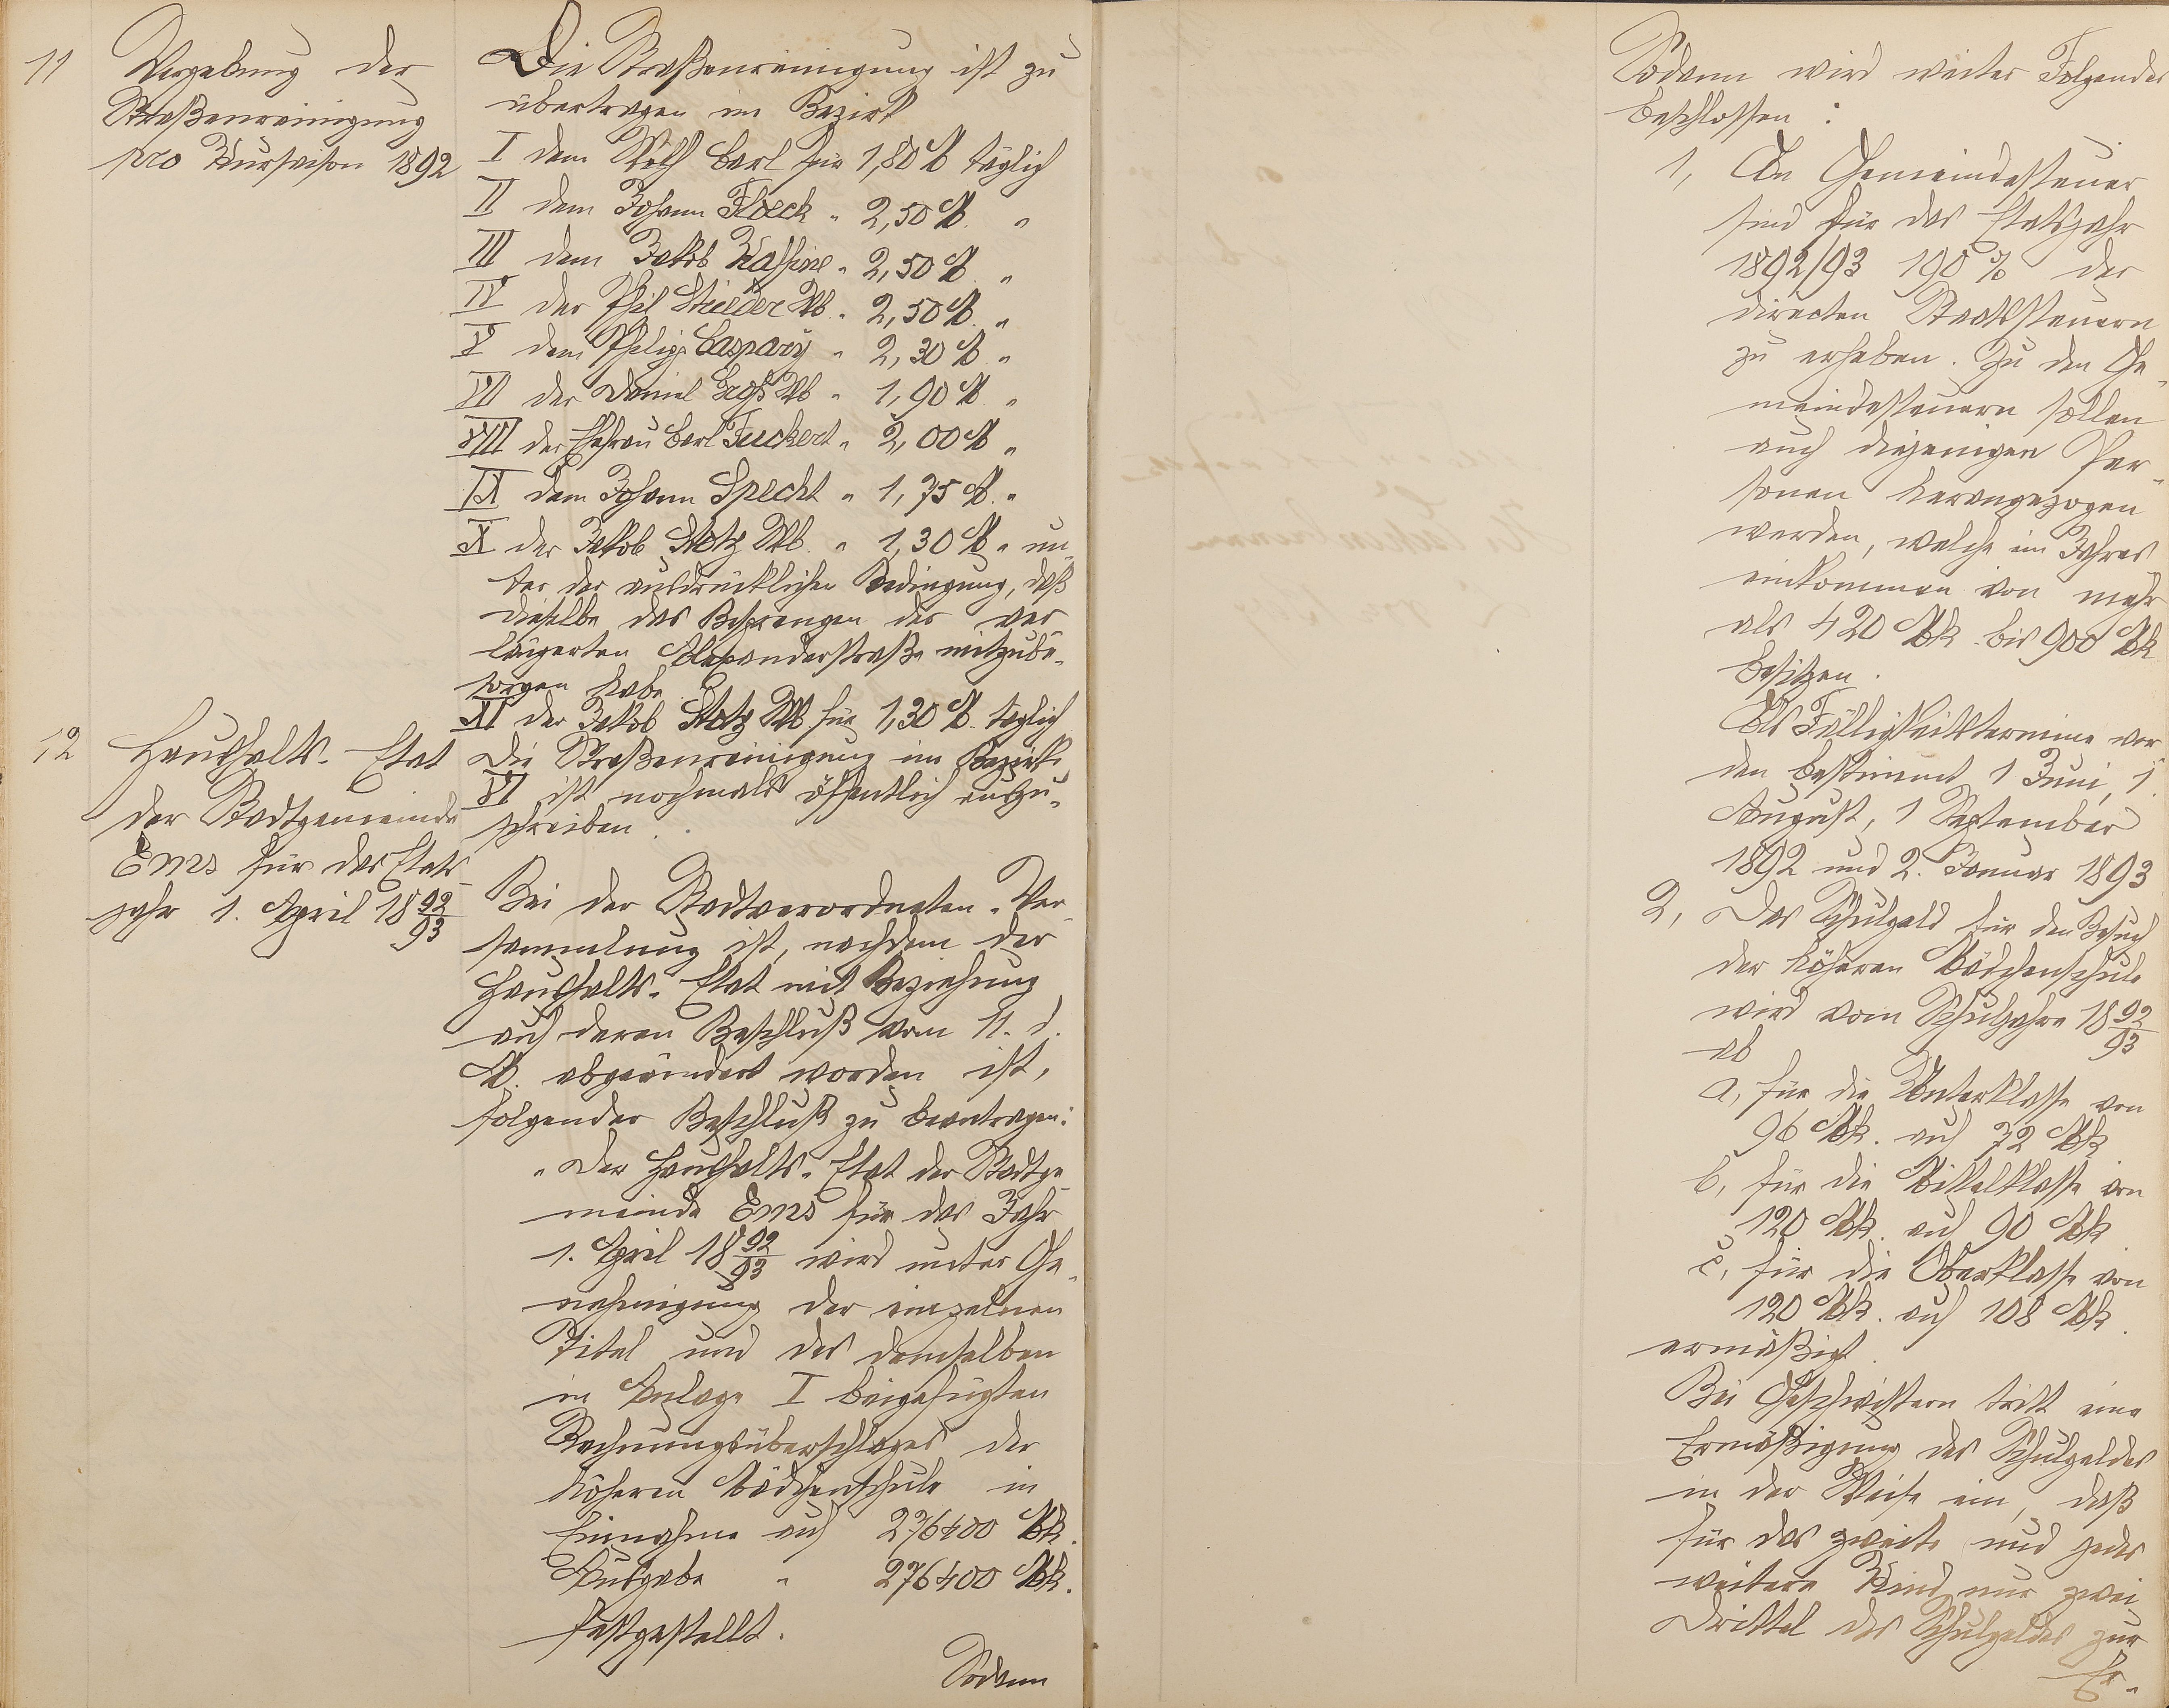 11
Vergebung der
Straßenreinigung
pro Kursaison 1892
Die Straßenreinigung ist zu
übertragen im Bezirk
I dem Wilh Carl für 1,80 M täglich
II dem Johann Floeck " 2,50 M. "
III dem Jakob Kassine " 2,50 M. "
IV der Phil Strieder Wb. " 2,50 M. "
V dem Philipp Caspary " 2,30 M. "
VII der Daniel Groß Wb " 1,90 M. "
VIII der Ehefrau Carl Fuckert " 2,00 M "
IX dem Johann Specht " 1,75 M. "
X der Jakob Stotz Wb. " 1,30 M " un-
ter der ausdrücklichen Bedingung, daß
dieselbe das Besprengen der ver
längerten Alexanderstraße mitzube-
sorgen habe.
XI der Jakob Stotz Wb für 1,30 M. täglich
Die Straßenreinigung im Bezirk
VI ist nochmals öffentlich auszu-
schreiben.
12
Haushalts-Etat
der Stadtgemeinde
Ems für das Etats-
jahr 1. April 18 92/93
Bei der Stadtverordneten-Ver-
sammlung ist, nachdem der
Haushalts-Etat mit Beziehung
auf deren Beschluß vom 11. d.
M. abgeändert worden ist,
folgender Beschluß zu beantragen:
"Der Haushalts-Etat der Stadtge-
meinde Ems für das Jahr
1. April 18 92/93 wird unter Ge-
nehmigung der einzelnen
Titel und des demselben
in Anlage I beigefügten
Rechnungsüberschlages der
höheren Mädchenschule in
Einnahme auf 276400 Mk.
Ausgabe " 276400 Mk.
festgestellt.
Sodann
Sodann wird weiter Folgendes
beschlossen:
1, An Gemeindesteuer
sind für das Etatsjahr
1892/93 190 % der
directen Staatssteuern
zu erheben. Zu den Ge-
meindesteuern sollen
auch diejenigen Per-
sonen herangezogen
werden, welche ein Jahres
einkommen von mehr
als 420 Mk. bis 900 Mk
besitzen.
Als Fälligkeitstermine wer
den bestimmt 1 Juni, 1.
August, 1 September
1892 und 2. Januar 1893
2, Das Schulgeld für den Besuch
der höheren Mädchenschule
wird vom Schuljahre 18 92/93
ab
a, für die Unterklasse von
96 Mk. auf 72 Mk
b, für die Mittelklasse von
120 Mk. auf 90 Mk
c, für die Oberklasse von
120 Mk. auf 108 Mk.
ermäßigt.
Bei Geschwistern tritt eine
Ermäßigung des Schulgeldes
in der Weise ein, daß
für das zweite und jedes
weitere Kind nur zwei
Drittel des Schulgeldes zur
Er-